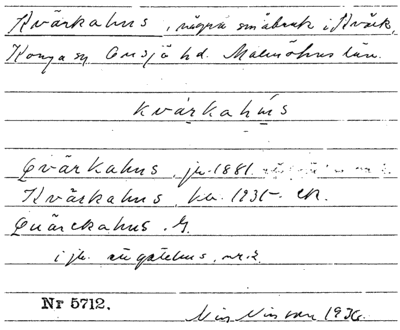 Kvärkahus, några småbruk i Kvärk,
Konga sn Onsjö hd. Malmöhus län.
kvárkahús
Qvärkahus, jr. 1881.
Kvärkahus, ka. 1935- ek.
Quärckahus. G.
i jr. nr. 2.
Nr 5712.
Nils Nilsson 1936.